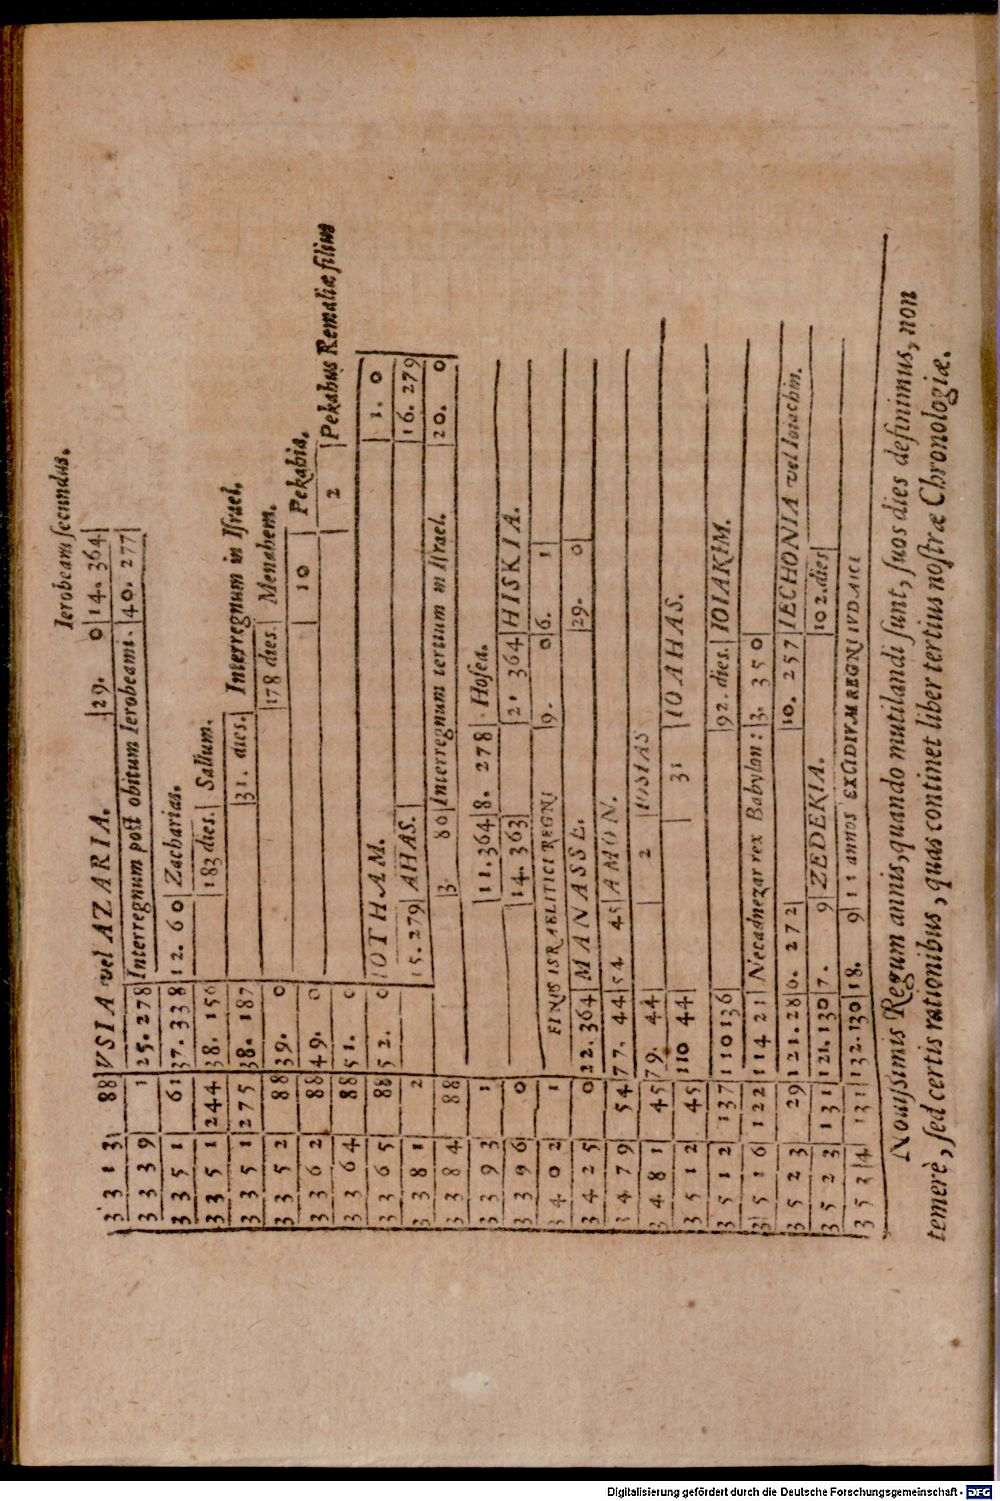 Ierobeam secundus.
3313 | 88 | VSIA vel AZARIA. | 29. 0 | 14. 364
3339 | 1 | 25. 278 | Interregnum post obitum Ierobeami. | 40. 277
3351 | 61 | 37. 338 | 12. 60 | Zacharias.
3351 | 244 | 38. 156 | 183 dies. | Sallum.
3351 | 275 | 38. 187 | 31. dies. | Interregnum in Israel.
3352 | 88 | 39. 0 | 178 dies. | Menahem.
3362 | 88 | 49. 0 | 10 | Pekahia.
3364 | 88 | 51. 0 | 2 | Pekahus Remaliæ filius
3365 | 88 | 52. 0 | IOTHAM. | 1. 0
3381 | 2 | 15. 279 | AHAS. | 16. 279
3384 | 88 | 3 80 | Interregnum tertium in Israel. | 20. 0
3393 | 1 | 11. 364 | 8. 278 | Hosea.
3396 | 0 | 14. 363 | 2. 364 | HISKIA.
3402 | 1 | FINIS ISRAELITICI REGNI | 9. 0 | 6. 1
3425 | 0 | 22. 364 | MANASSE. | 29. 0
3479 | 54 | 77. 44 | 54 45 | AMON.
3481 | 45 | 79. 44 | 2 | IOSIAS
3512 | 45 | 110 44 | 31 | IOAHAS.
3512 | 137 | 110 136 | 92. dies. | IOIAKIM.
3516 | 122 | 114 21 | Necadnezar rex Babylon: | 3. 350
3523 | 29 | 121. 28 | 6. 272 | 10. 257 | IECHONIA vel Ioiachin.
3523 | 131 | 121. 130 | 7. 9 | ZEDEKIA. | 102. dies
3534 | 131 | 132. 130 | 18. 9 | 11 annos EXCIDIVM REGNI IVDAICI
Nouissimis Regum annis, quando mutilandi sunt, suos dies definimus, non
temerè, sed certis rationibus, quas continet liber tertius nostræ Chronologiæ.
Digitalisierung gefördert durch die Deutsche Forschungsgemeinschaft - DFG